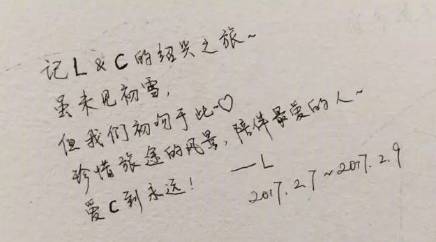 记L&C的绍兴之旅~
虽未见初雪，
但我们初吻于此~♡
珍惜旅途的风景，陪伴最爱的人~
爱C到永远！
——L
2017.2.7~2017.2.9